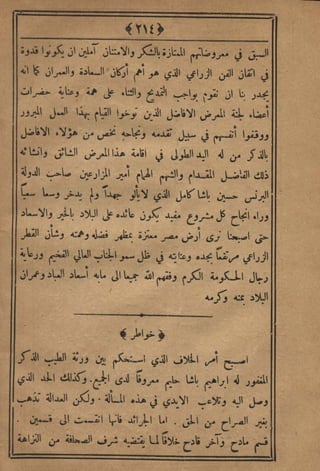 ﴿٢١٤﴾
السبق في معروضاتهم الممتازة بالشكر والامتنان آملين ان يكونوا قدوة
في اتقان الفن الزراعي الذي هو أهم أركان السعادة والعمران كما انه
يجدر بنا ان نقوم بواجب التمديح والثناء على همة وعناية حضرات
أعضاء لجنة المعرض الافاضل الذين توخوا القيام بهذا العمل المبرور
ووقفوا أنفسهم في سبيل تقدمه ونجاحه نخص من هؤلاء الافاضل
بالذكر من له اليد الطولى في اقامة هذا المعرض الشائق وانشائه
ذلك الفاضل المقدام والشهم الهمام أمير المزارعين صاحب الدولة
البرنس حسين باشا كامل الذي لا يألو جهداً ولم يدخر وسعاً سعياً
وراء انجاح كل مشروع مفيد يكون عائده على البلاد بالخير والاسعاد
حتى اصبحنا نرى أرض مصر معتزة بمظهر فضله وهمته وشأن القطر
الزراعي مرتفعاً بجده وعنايته في ظل سمو الجناب العالي الفخيم ورعاية
رجال الحكومة الكرم وفقهم الله جميعا الى مابه أسعاد العباد وعمران
البلاد بمنه وكرمه
﴿ خواطر ﴾
اصبح أمر الخلاف الذي استحكم بين ورثة الطيب الذكر
المغفور له ابراهيم باشا حليم معروفاً لدى الجميع. وكذلك الحد الذي
وصل اليه وتلاعب الايدي في هذه المسألة. ولكن العدالة تذهب
بغير الصراح من الحق. اما الجرائد فانها انقسمت الى قسمين.
قسم مادح وآخر قادح خلافاً لما يقتضيه شرف الصحافة من النزاهة